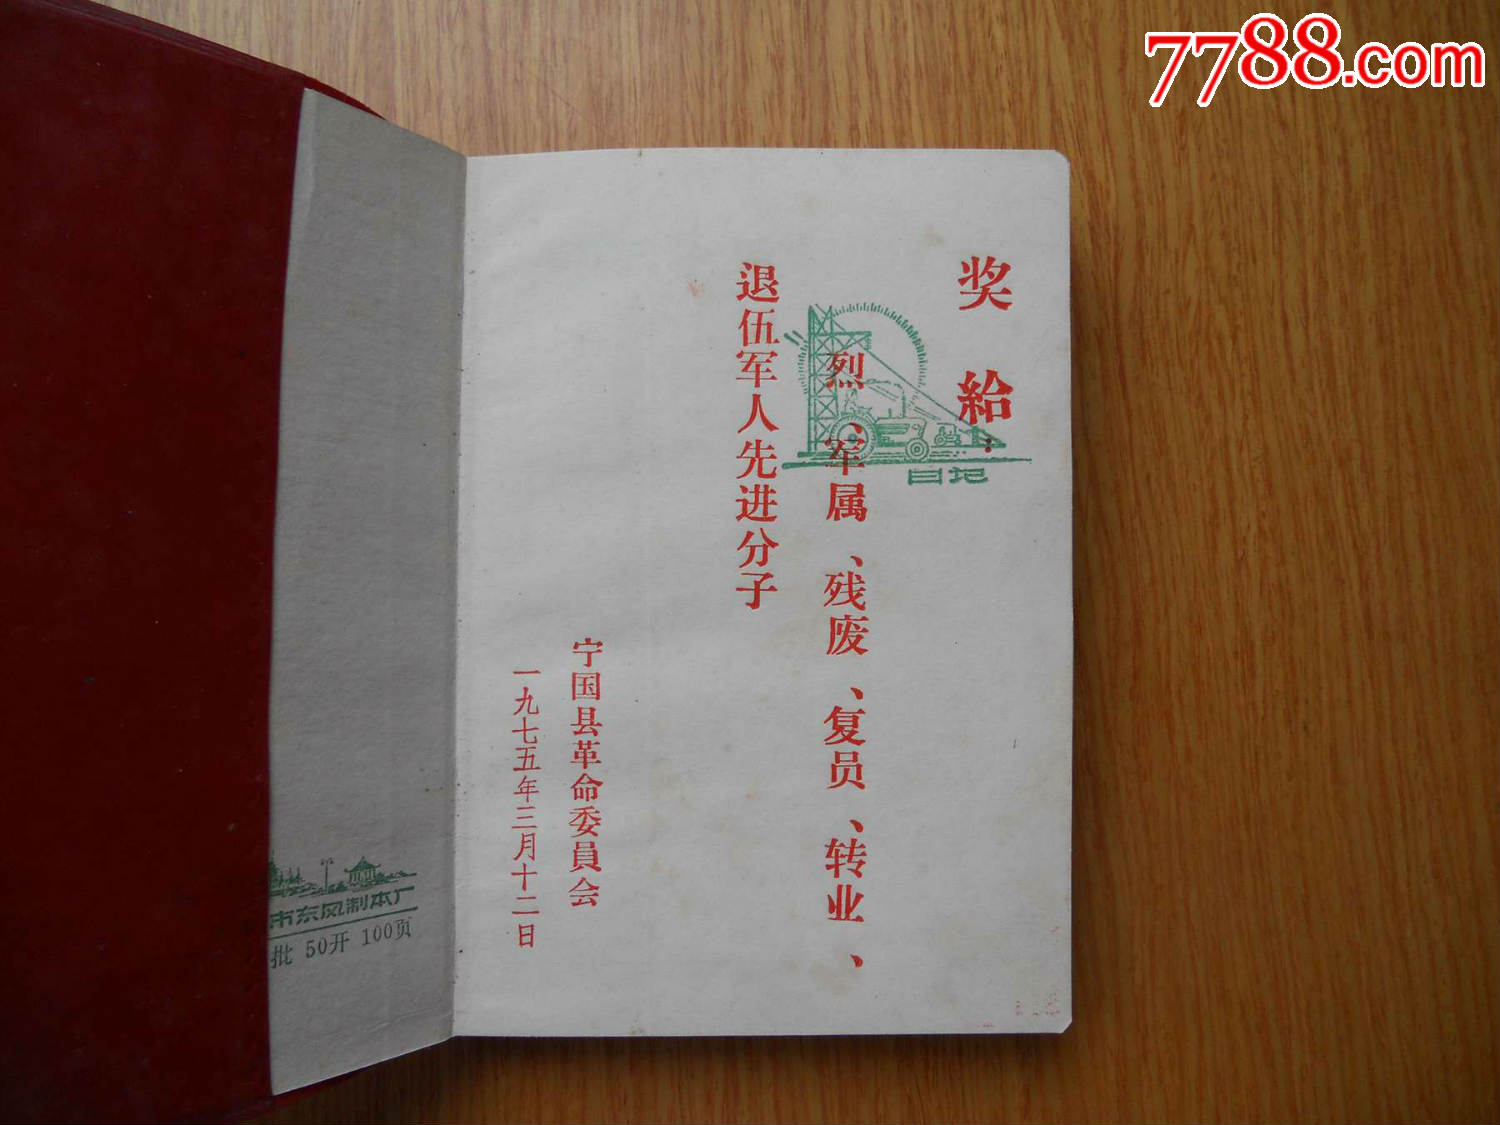 7788.com
奖給：
烈、军属、残废、复员、转业、
退伍军人先进分子
宁国县革命委員会
一九七五年三月十二日
日记
市东风制本厂
批 50开 100页